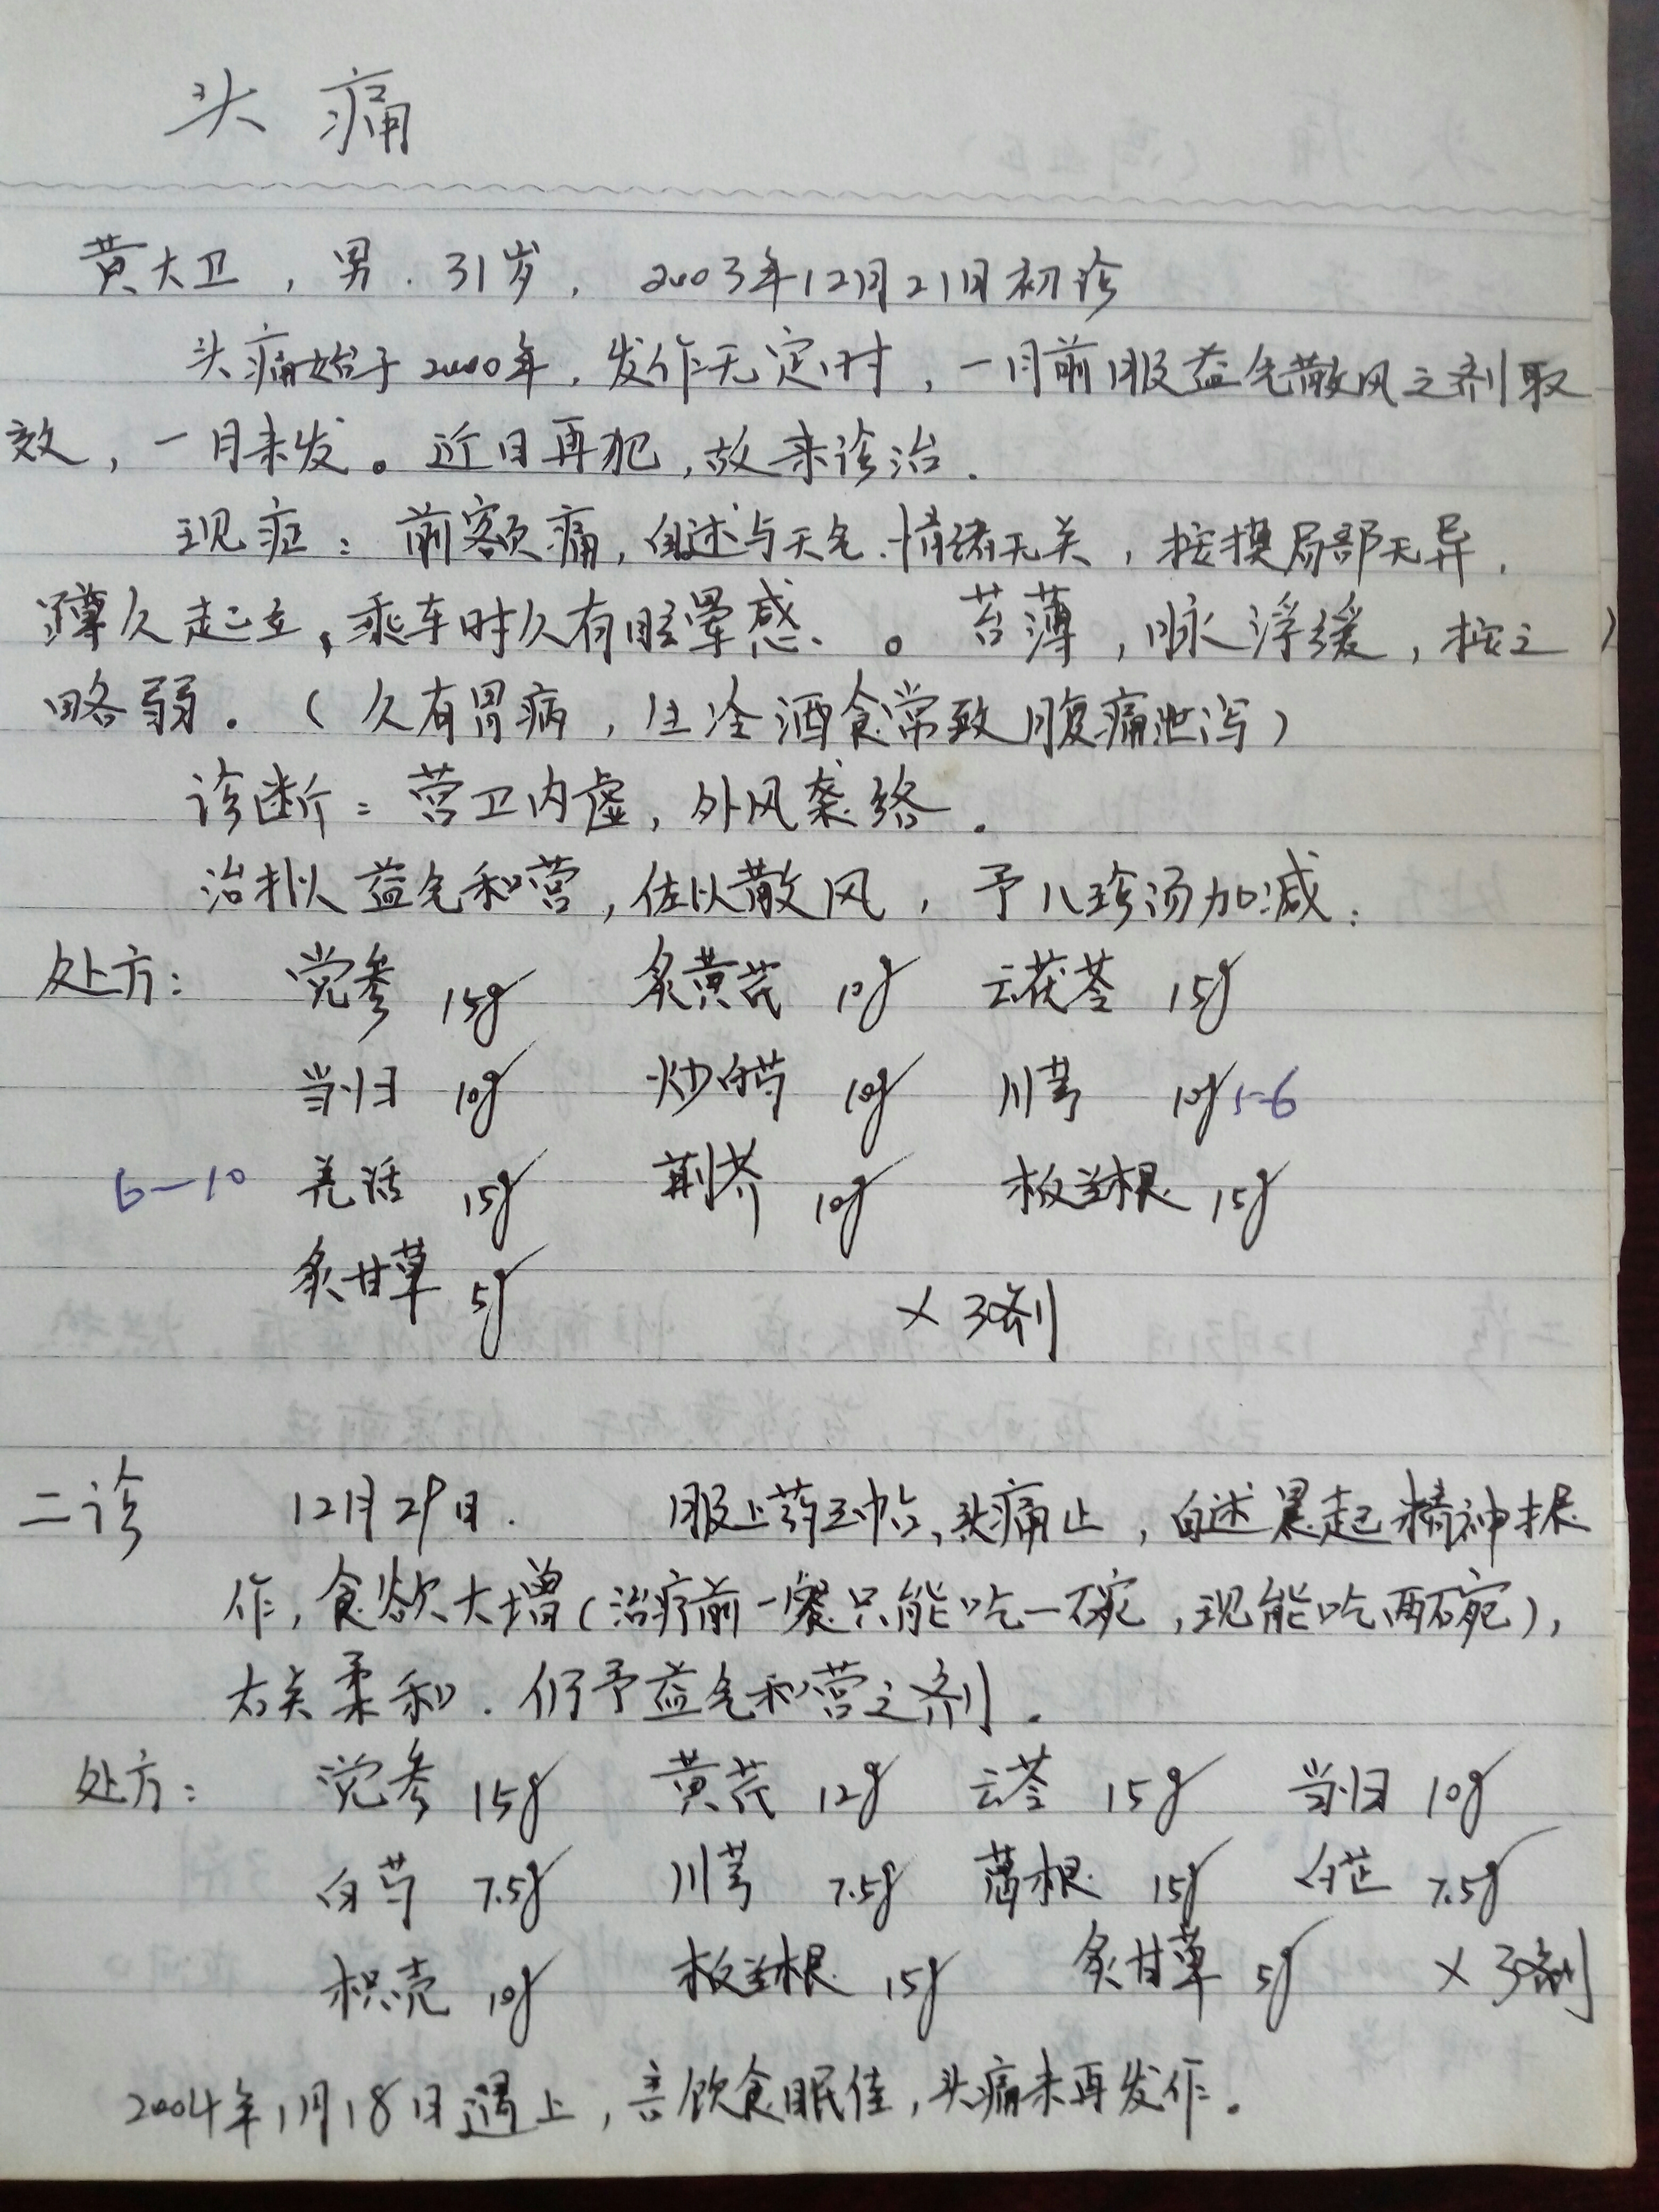 头痛
黄大卫，男．31岁， 2003年12月21日初诊
头痛始于2000年，发作无定时，一月前服益气散风之剂取
效，一月未发。近日再犯，故来诊治．
现症：前额痛，自述与天气、情绪无关，按摸局部无异，
蹲久起立、乘车时久有眩晕感、。苔薄，脉浮缓，按之
略弱。（久有胃病，生冷酒食常致腹痛泄泻）
诊断：营卫内虚，外风袭络．
治拟益气和营，佐以散风，予八珍汤加减：
处方： 党参 15g 炙黄芪 10g 云茯苓 15g
当归 10g 炒白芍 10g 川芎 10g 5-6
6—10 羌活 15g 荆芥 10g 板兰根 15g
炙甘草 5g ×3剂
二诊 12月29日． 服上药三帖、头痛止，自述晨起精神振
作，食欲大增（治疗前一餐只能吃一碗，现能吃两碗），
右关柔和．仍予益气和营之剂．
处方： 党参 15g 黄芪 12g 云苓 15g 当归 10g
白芍 7.5g 川芎 7.5g 葛根 15g 白芷 7.5g
枳壳 10g 板兰根 15g 炙甘草 5g ×3剂
2004年1月18日遇上，言饮食眠佳，头痛未再发作。